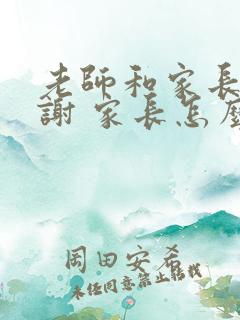 老師和家長
謝 家長怎麼
岡田安希
未任同意禁止轉載